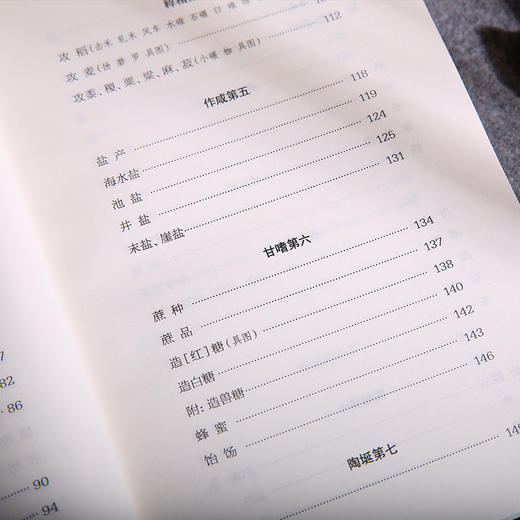 7
82
86
90
94
攻稻(击禾 轧禾 风车 水碾 石碾 臼 碓
攻麦(扬 磨 罗 具图)
攻黍、稷、粟、粱、麻、菽(小碾 枷 具图) 112
作咸第五
盐产 118
海水盐 119
池盐 124
井盐 125
末盐、崖盐 131
甘嗜第六
蔗种 134
蔗品 137
造[红]糖(具图) 138
造白糖 140
附:造兽糖 142
蜂蜜 143
饴饧 146
陶埏第七
149